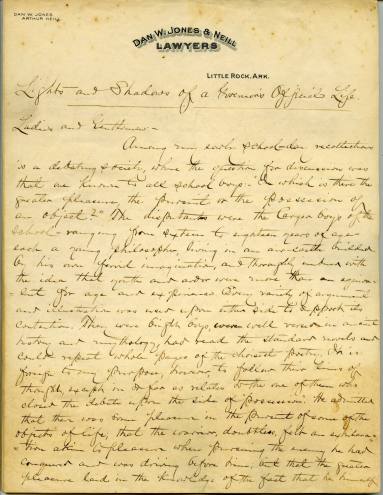 DAN W. JONES
ARTHUR NEILL
DAN W. JONES & NEILL
LAWYERS
LITTLE ROCK, ARK.
Lights and Shadows of a Governor's Official Life.
Ladies and Gentlemen -
Among my early school-day recollections
is a debating society, where the question for discussion was
that one known to all school boys - "In which is there the
greater pleasure, the pursuit or the possession of
an object?" The disputants were the larger boys of the
school - ranging from sixteen to eighteen years of age -
each a young philosopher, living in an air-castle builded
by his own fervid imagination, and thoroughly imbued with
the idea that youth and ardor were more than an equiva-
-lent for age and experience. Every variety of argument
and illustration was used upon either side to support its
contention. These were bright boys, were well versed in ancient
history and mythology, had read the standard novels and
could repeat whole pages of the choicest poetry. It is
foreign to my purpose, however, to follow their lines of
thought, except in so far as relates to the one of them who
closed the debate upon the side of possession. He admitted
that there was some pleasure in the pursuit of some of the
objects of life; that the warrior, doubtless, felt an
akin to pleasure when pursuing the enemy he had
conquered and was driving before him, but that the greater
pleasure laid in the knowledge of the fact that he himself